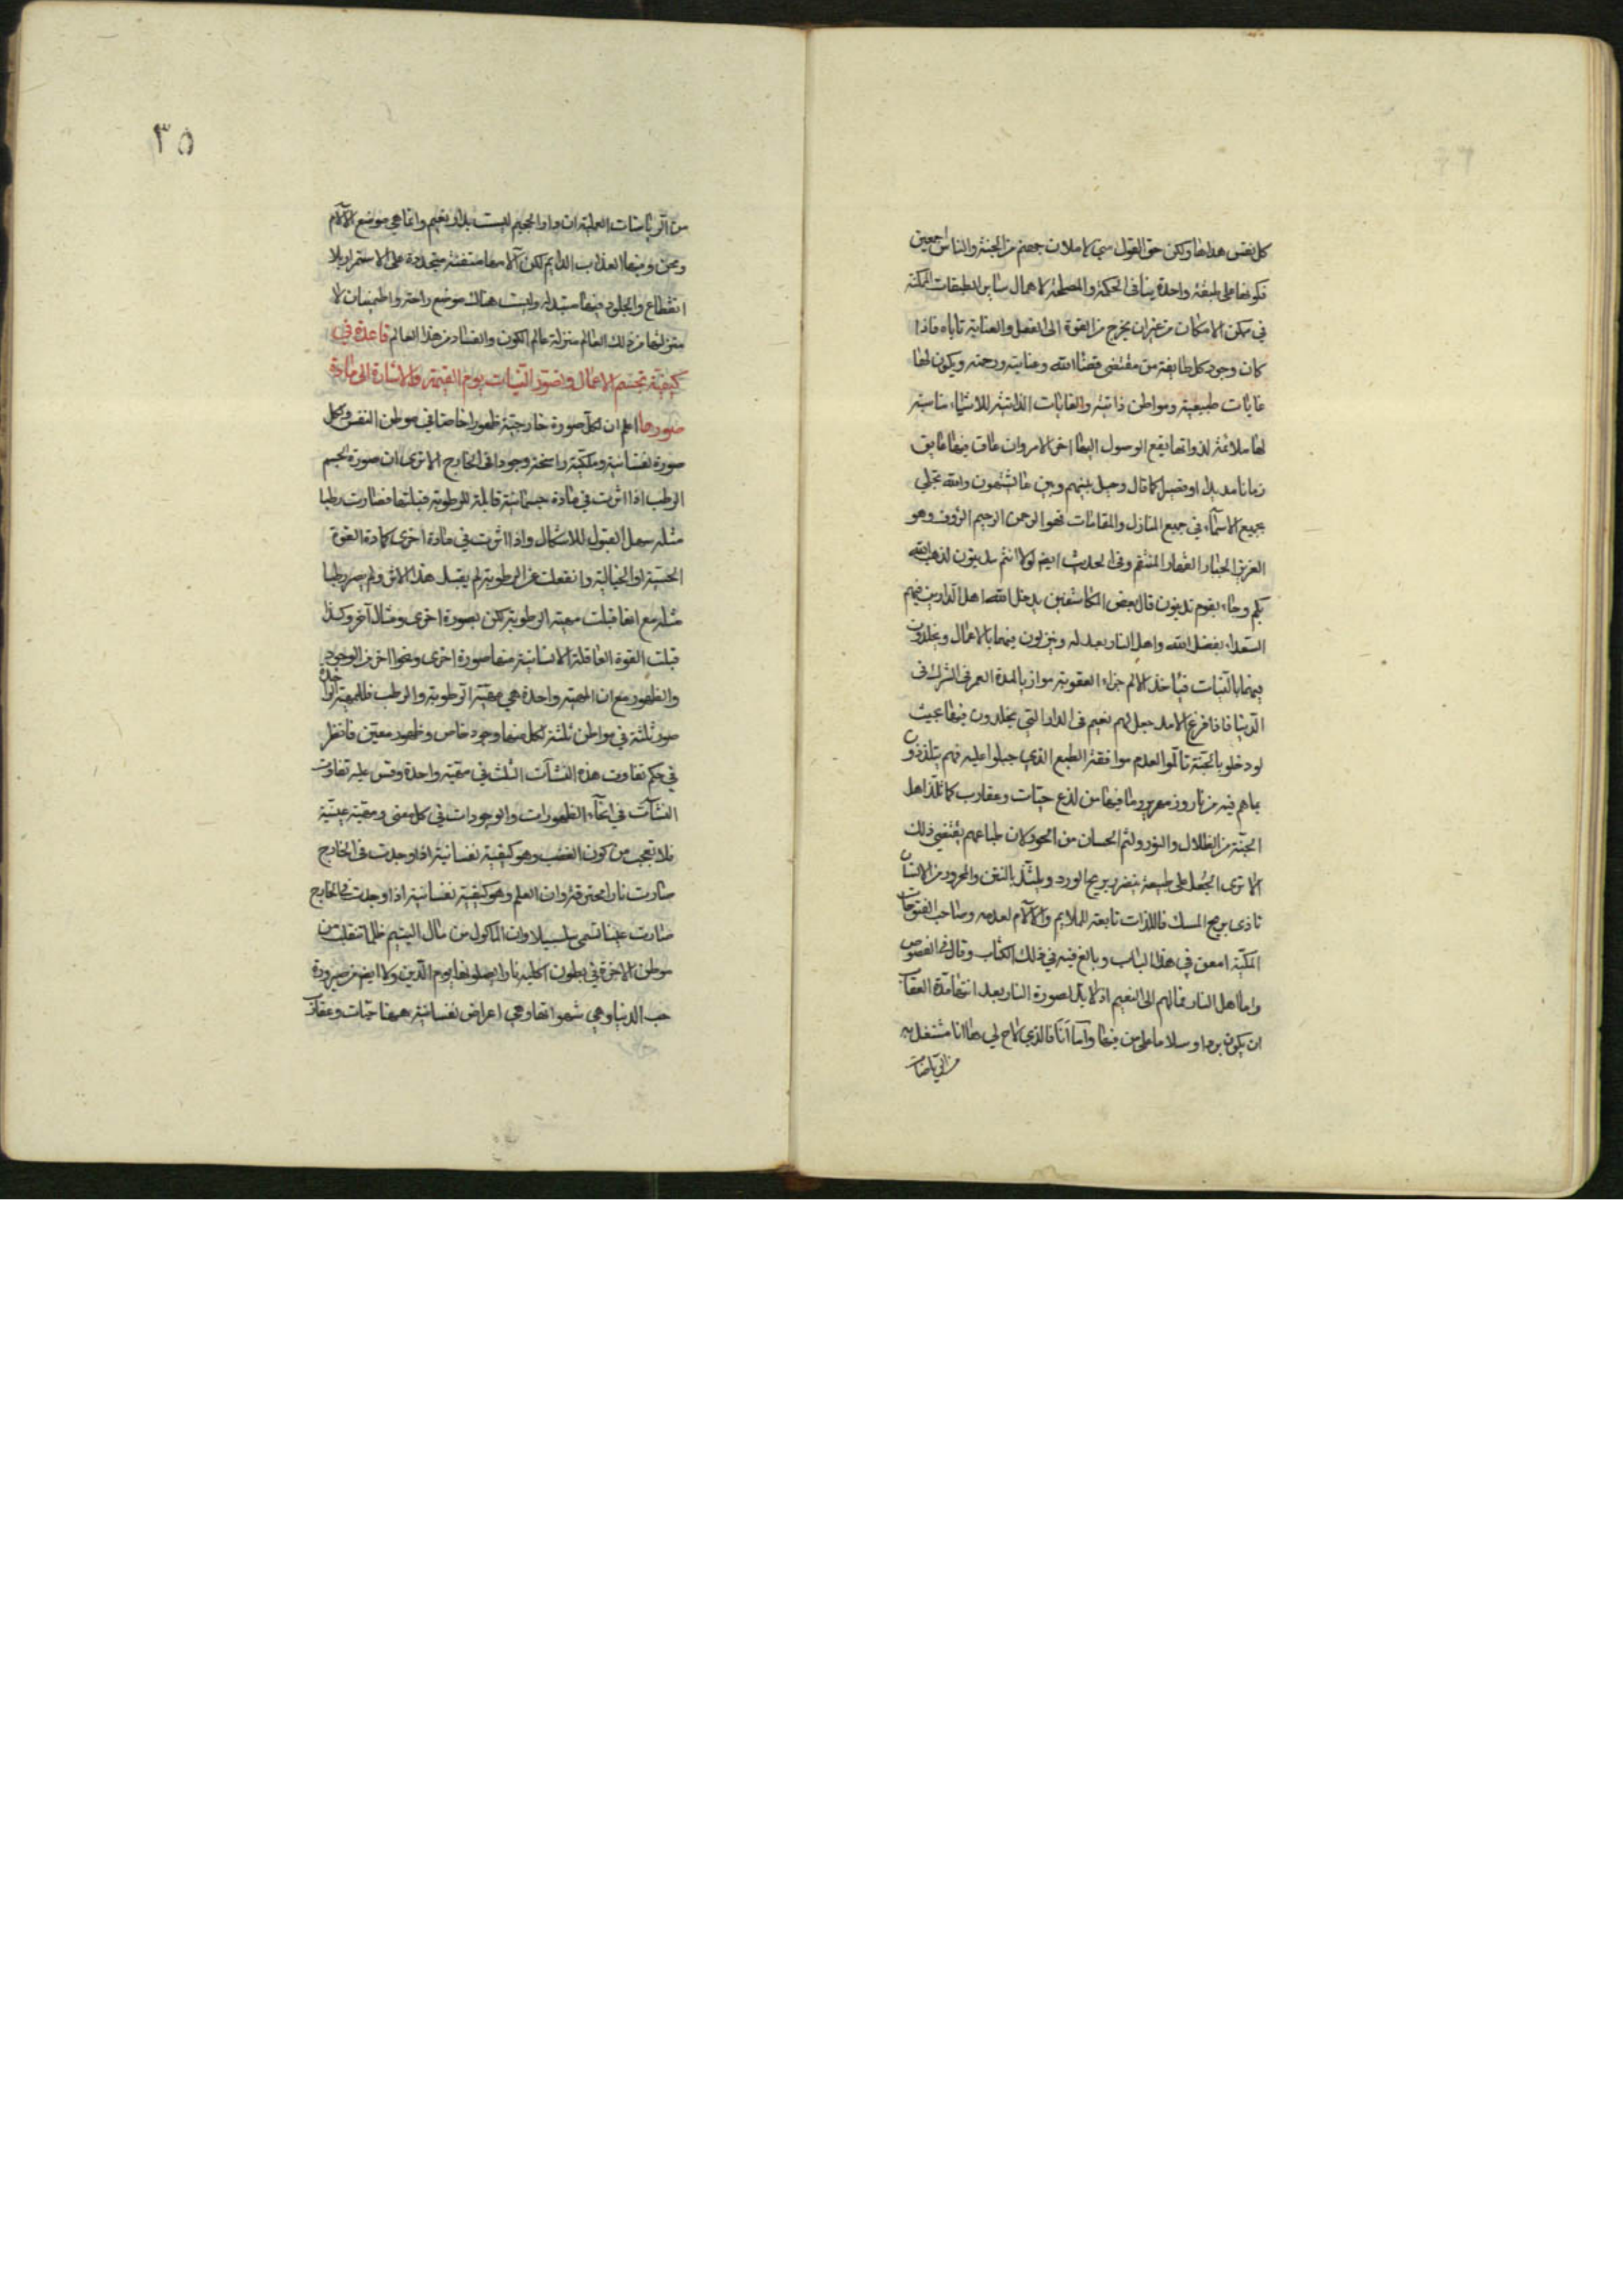 كل نفس هداها ولكن حق القول مني لاملان جهنم من الجنة والناس اجمعين
فكونها على طبقة واحدة ينافي الحكمة والمصلحة لاهمال سائر الطبقات الممكنة
في مكمن الامكان من غير ان يخرج من القوة الى الفعل والعناية تاباه فاذا
كان وجود كل طايفة من مقتضى قضاء الله وعنايته ورحمته ويكون لها
غايات طبيعية ومواطن ذاتية والغايات الذاتية للاشياء مناسبة
لها ملائمة لذواتها يقع الوصول اليها اخر الامر وان عاق عنها عايق
زمانا مديدا او قصيرا كما قال وحيل بينهم وبين ما يشتهون والله تجلى
بجميع الاسماء في جميع المنازل والمقامات فهو الرحمن الرحيم الرؤف وهو
العزيز الجبار القهار المنتقم وفى الحديث ايضا لولا انتم تذنبون لذهب الله
بكم وجاء بقوم تذنبون قال بعض المكاشفين يدخل الله اهل الدارين فيهم
السعداء بفضل الله واهل النار بعدله وينزلون فيهما بالاعمال ويخلدون
فيهما بالنيات فياخذ الالم جزاء العقوبة موازيا لمدة العمر في الشرك في
الدنيا فاذا فرغ الامد جعل لهم نعيم في الدار التي يخلدون فيها بحيث
لو دخلوا الجنة تالموا لعدم موافقة الطبع الذي جبلوا عليه فهم يتلذذون
بما هم فيه من نار وزمهرير وما فيها من لذع حيات وعقارب كما تلتذ اهل
الجنة من الظلال والنور ولثم الحسان من الحور لان طباعهم يقتضي ذلك
الا ترى الجعل على طبيعة يتضرر بريح الورد ويلتذ بالنتن والمحرور من الانسان
تاذى بريح المسك فاللذات تابعة للملايم والآلام لعدمه وصاحب الفتوحات
المكية امعن في هذا الباب وبالغ فيه في ذلك الكتاب وقال في الفصوص
واما اهل النار فمالهم الى النعيم اذ لا بد لصورة النار بعد انتهاء مدة العقاب
ان يكون بردا وسلاما على من فيها واما انا فالذي لاح لي بما انا مشتغل به
من الرياضات
٣٥
من الرياضات العملية ان دار الجحيم ليست بدار نعيم وانما هي موضع الآلام
ومحن وفيها العذاب الدايم لكن آلامها متفننة متجددة على الاستمرار بلا
انقطاع والجلود فيها متبدلة وليست هناك موضع راحة واطمينان لان
منزلتها من ذلك العالم منزلة عالم الكون والفساد من هذا العالم قاعدة في
كيفية تجسم الاعمال وتصور النيات يوم القيمة والاشارة الى مادة
صورها اعلم ان لكل صورة خارجية ظهورا خاصا في موطن النفس ولكل
صورة نفسانية وملكة راسخة وجودا في الخارج الا ترى ان صورة الجسم
الرطب اذا اثرت في مادة جسمانية قابلة للرطوبة قبلتها فصارت رطبا
مثله سهل القبول للاشكال واذا اثرت في مادة اخرى كمادة القوة
الحسية او الخيالية وانفعلت عن الرطوبة لم يقبل هذا الاثر ولم يصر رطبا
مثله مع انها قبلت مهية الرطوبة لكن بصورة اخرى ومثال آخر وكذا
قبلت القوة العاقلة الانسانية منها صورة اخرى ونحوا اخر من الوجود
والظهور مع ان المهية واحدة هي مهية الرطوبة والرطب فللمهية الواحدة
صور ثلثة في مواطن ثلثة لكل منها وجود خاص وظهور معين فانظر
في حكم تفاوت هذه النشآت الثلث في مهية واحدة وقس عليه تفاوت
النشآت في انحاء الظهورات والوجودات في كل معنى ومهية عينية
فلا تعجب من كون الغضب وهو كيفية نفسانية اذا وجدت في الخارج
صارت نارا محترقة وان العلم وهو كيفية نفسانية اذا وجدت في الخارج
صارت عينا تسمى سلسبيلا وان الماكول من مال اليتيم ظلما تنقلب من
موطن الاخرة في بطون اكليه نارا يصلونها يوم الدين ولا ايضا من صيرورة
حب الدنيا وهي شهواتها وهي اعراض نفسانية ههنا حيات وعقارب